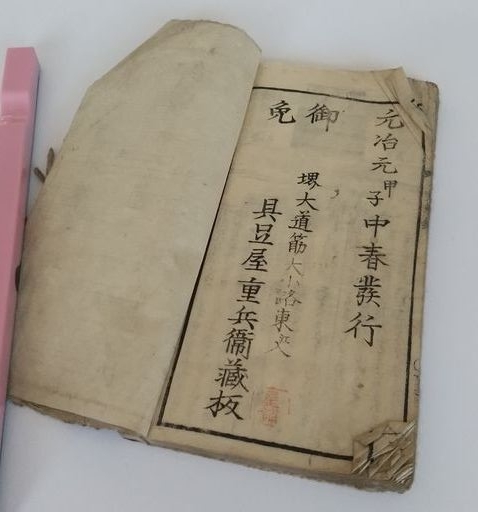 元治元甲子中春發行
御免
堺大道筋大小路東入
具足屋重兵衞藏板